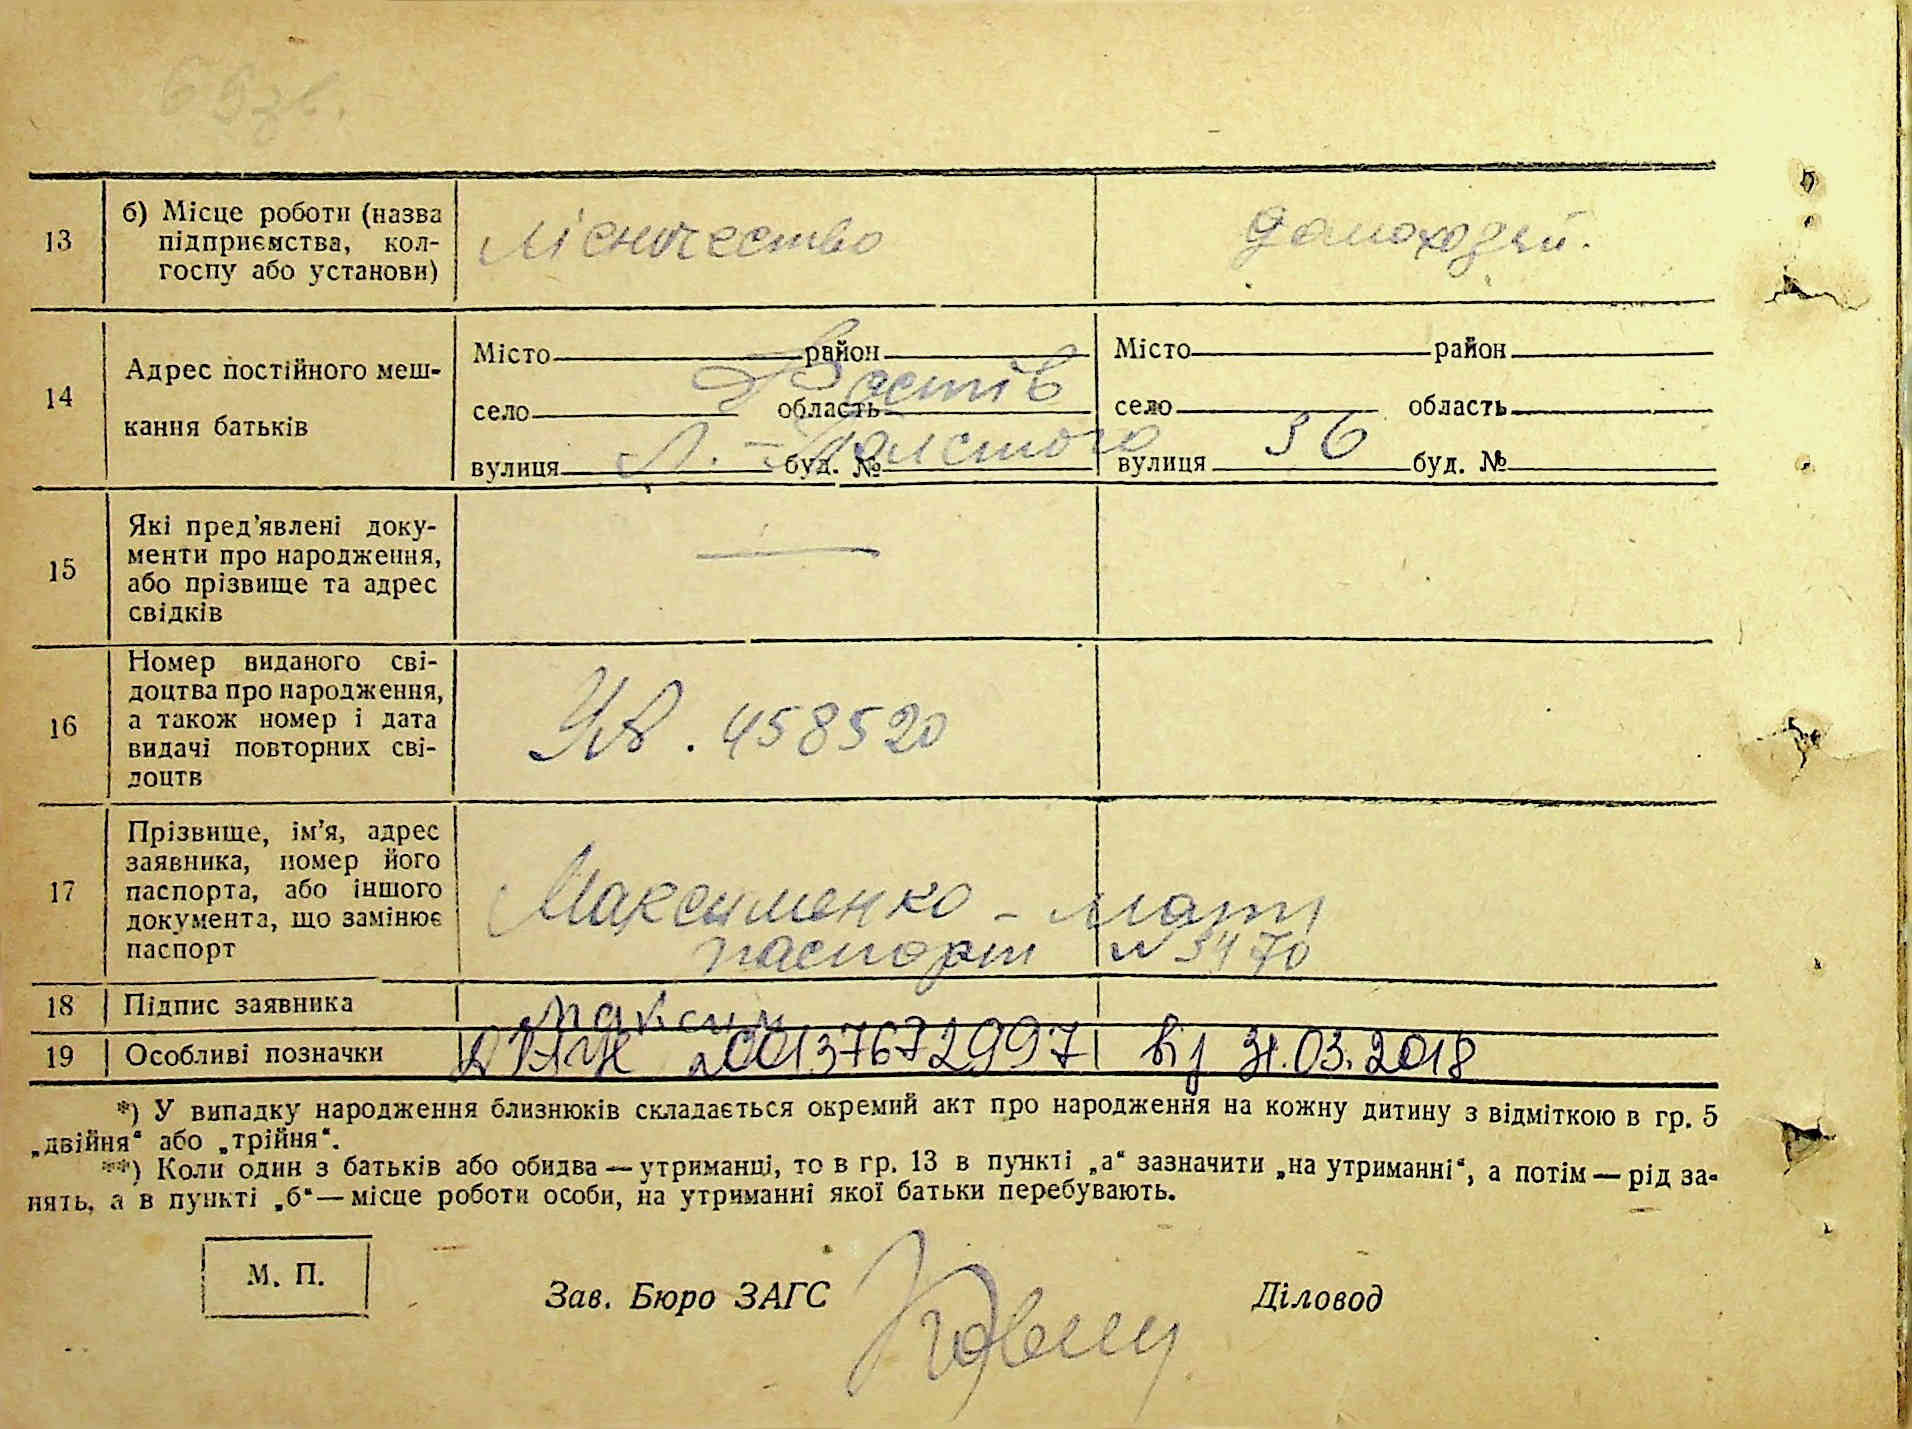 13
б) Місце роботи (назва
підприємства, кол-
госпу або установи)
лісничество
домохозяй.
14
Адрес постійного меш-
кання батьків
Місто район
село область
вулиця буд. №
Місто район
село область
вулиця буд. №
Л. Толстого 36
15
Які пред'явлені доку-
менти про народження,
або прізвище та адрес
свідків
16
Номер виданого сві-
доцтва про народження,
а також номер і дата
видачі повторних сві-
доцтв
458520
17
Прізвище, ім'я, адрес
заявника, номер його
паспорта, або іншого
документа, що замінює
паспорт
Максименко - мати
паспорт N
18
Підпис заявника
Максим
19
Особливі позначки
00137672997 від 31.03.2018
*) У випадку народження близнюків складається окремий акт про народження на кожну дитину з відміткою в гр. 5
„двійня“ або „трійня“.
**) Коли один з батьків або обидва — утриманці, то в гр. 13 в пункті „а“ зазначити „на утриманні“, а потім — рід за-
нять, а в пункті „б“ — місце роботи особи, на утриманні якої батьки перебувають.
М. П.
Зав. Бюро ЗАГС
Діловод